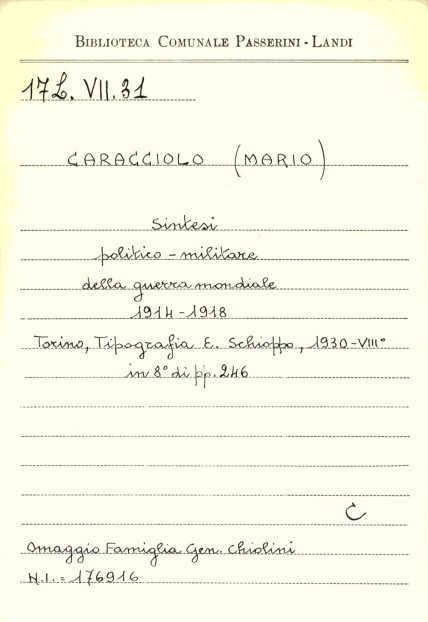 BIBLIOTECA COMUNALE PASSERINI - LANDI
17L. VII. 31
CARACCIOLO (MARIO)
Sintesi
politico - militare
della guerra mondiale
1914 - 1918
Torino, Tipografia E. Schioppo, 1930 - VIII°
in 8° di pp. 246
C
Omaggio Famiglia Gen. Chiolini
N.I. = 176916